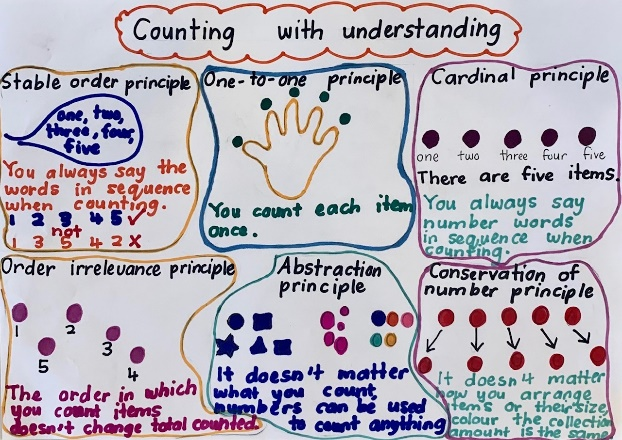 Counting with understanding
Stable order principle
one, two,
three, four,
five
You always say the
words in sequence
when counting.
1 2 3 4 5 ✓
not
1 3 5 4 2 X
One-to-one principle
You count each item
once.
Cardinal principle
one two three four five
There are five items.
You always say
number words
in sequence when
counting.
Order irrelevance principle
1 2 3 4 5
The order in which
you count items
doesn't change total counted.
Abstraction
principle
It doesn't matter
what you count,
numbers can be used
to count anything
Conservation of
number principle
It doesn't matter
how you arrange
items or their size,
colour the collection
amount is the same